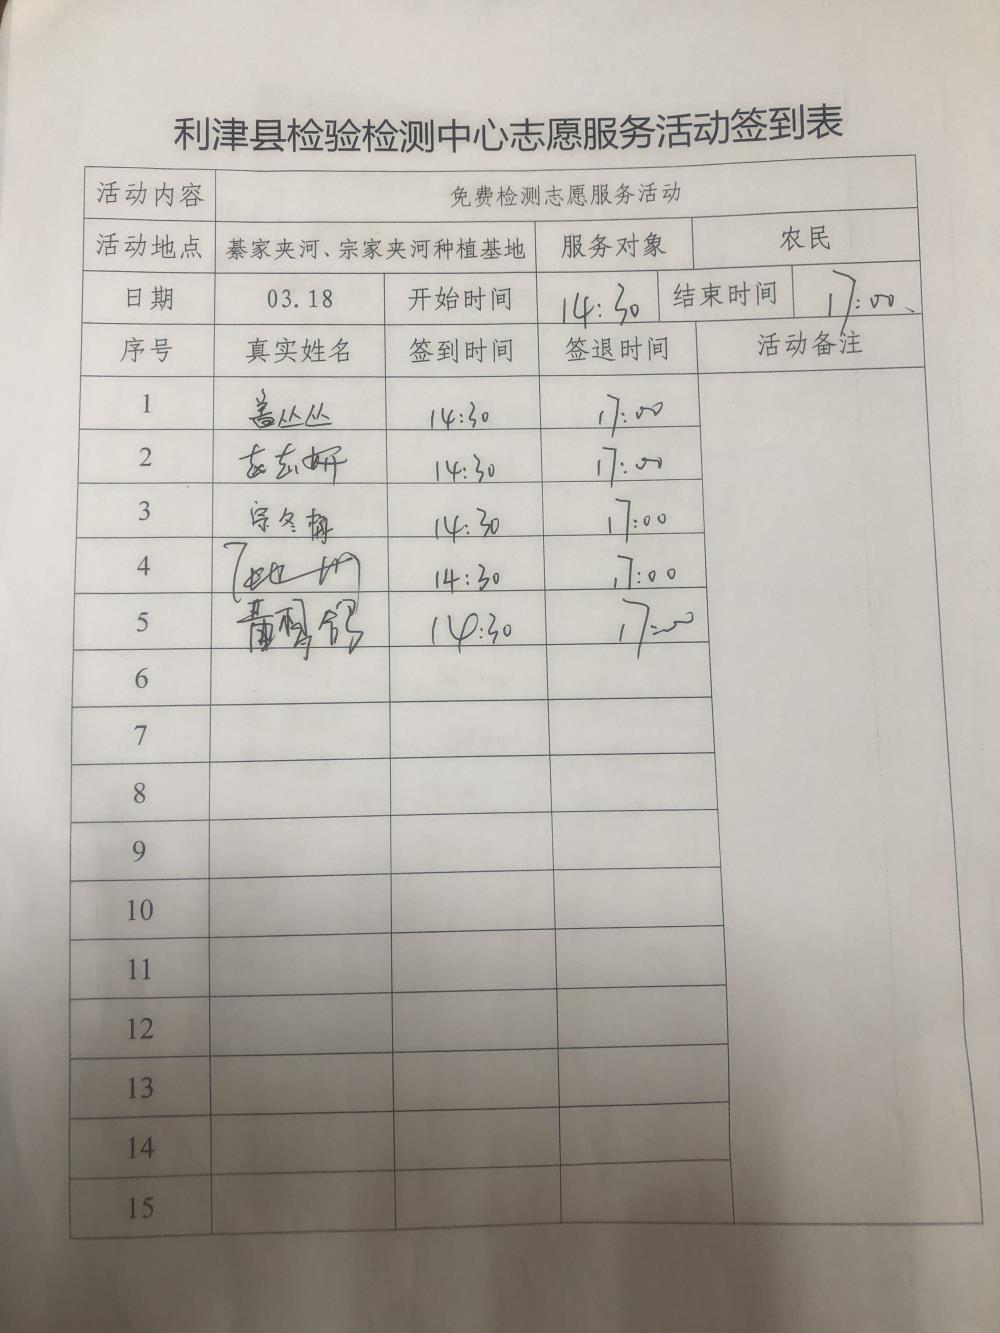 利津县检验检测中心志愿服务活动签到表
活动内容 免费检测志愿服务活动
活动地点 綦家夹河、宗家夹河种植基地 服务对象 农民
日期 03.18 开始时间 14:30 结束时间 17:00
序号 真实姓名 签到时间 签退时间 活动备注
1 盖丛丛 14:30 17:00
2 14:30 17:00
3 宗冬梅 14:30 17:00
4 14:30 17:00
5 14:30 17:00
6
7
8
9
10
11
12
13
14
15